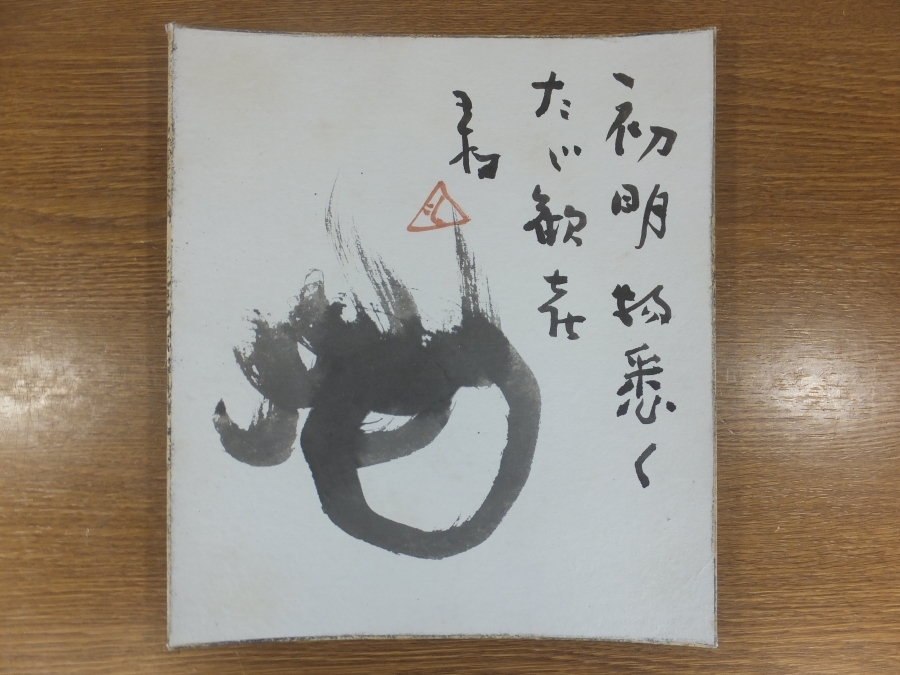 初明物悉く
たゞ歓喜